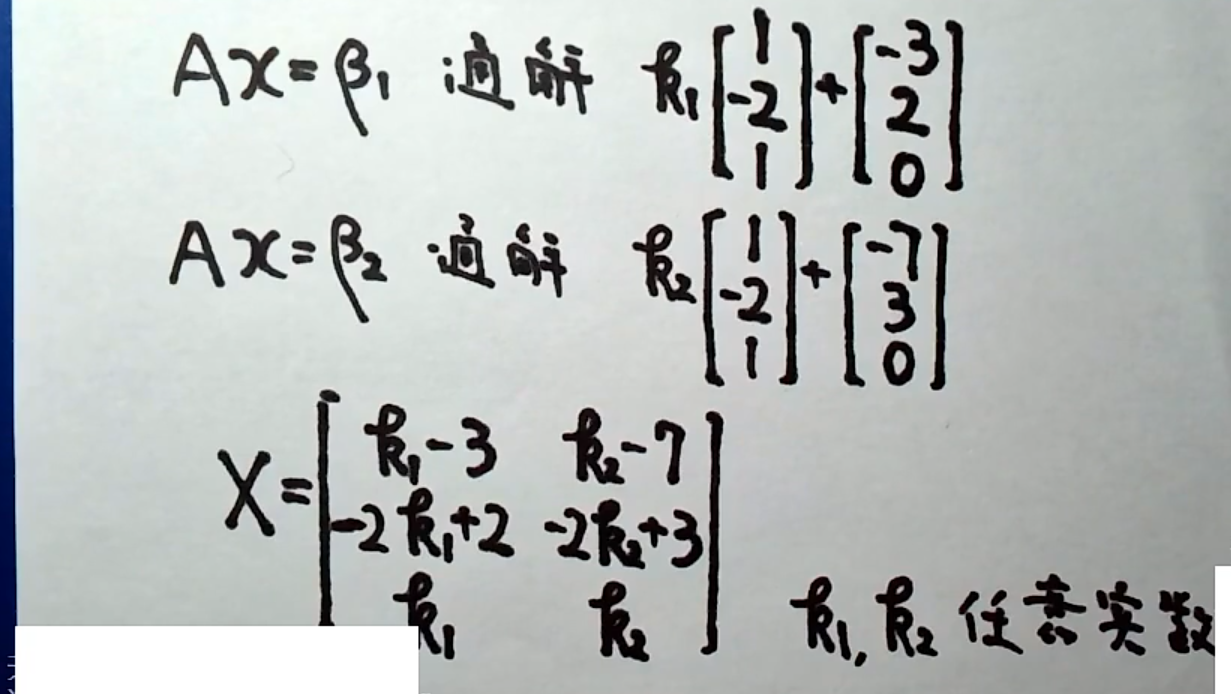 Ax=β₁ 通解 k₁[1 -2 1]+[-3 2 0]
Ax=β₂ 通解 k₂[1 -2 1]+[-7 3 0]
X=[k₁-3 k₂-7
-2k₁+2 -2k₂+3
k₁ k₂] k₁,k₂任意实数